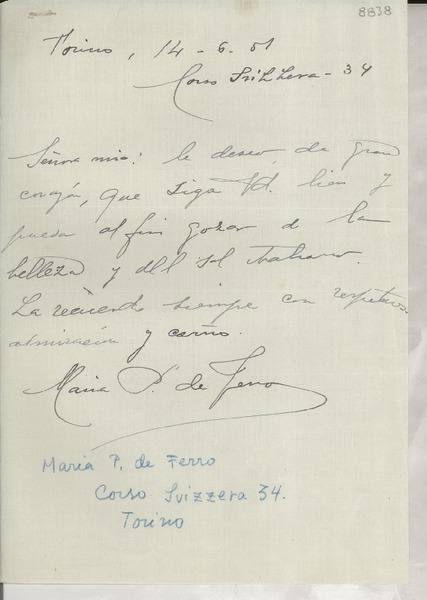 8838
Torino, 14-6-51
Corso Svizzera-34
Señora mía: le deseo, de gran
corazón, que siga Vd. bien y
pueda al fin gozar de la
belleza y del sol italiano.
La recuerdo siempre con respetuosa
admiración y cariño.
Maria P. de Ferro
Maria P. de Ferro
Corso Svizzera 34.
Torino